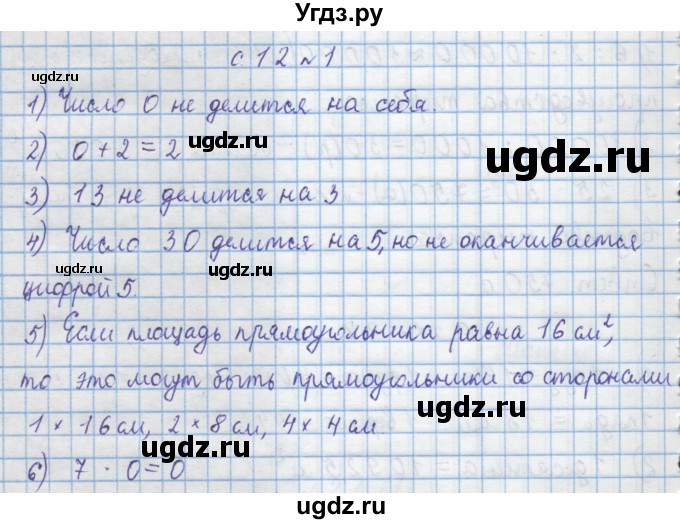 Угдз.ру
с. 12 № 1
ugdz.ru
1) Число 0 не делится на себя.
ugdz.ru
2) 0 + 2 = 2
ugdz.ru
ugdz.ru
3) 13 не делится на 3
4) Число 30 делится на 5, но не оканчивается
ugdz.ru
ugdz.ru
цифрой 5.
5) Если площадь прямоугольника равна 16 см²,
ugdz.ru
то это могут быть прямоугольники со сторонами
1 × 16 см, 2 × 8 см, 4 × 4 см
ugdz.ru
ugdz.ru
6) 7 · 0 = 0
ugdz.ru
ugdz.ru